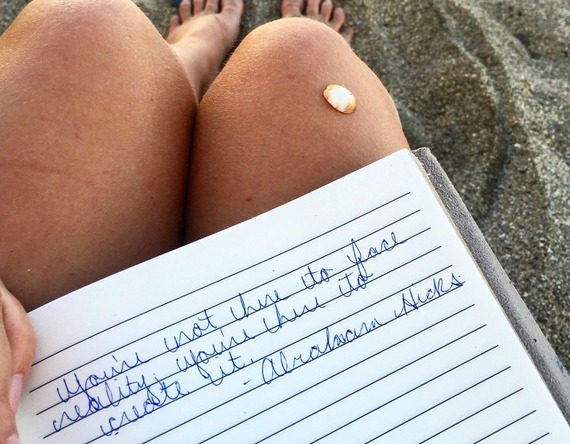 You're not here to face
reality, you're here to
create it.
- Abraham Hicks